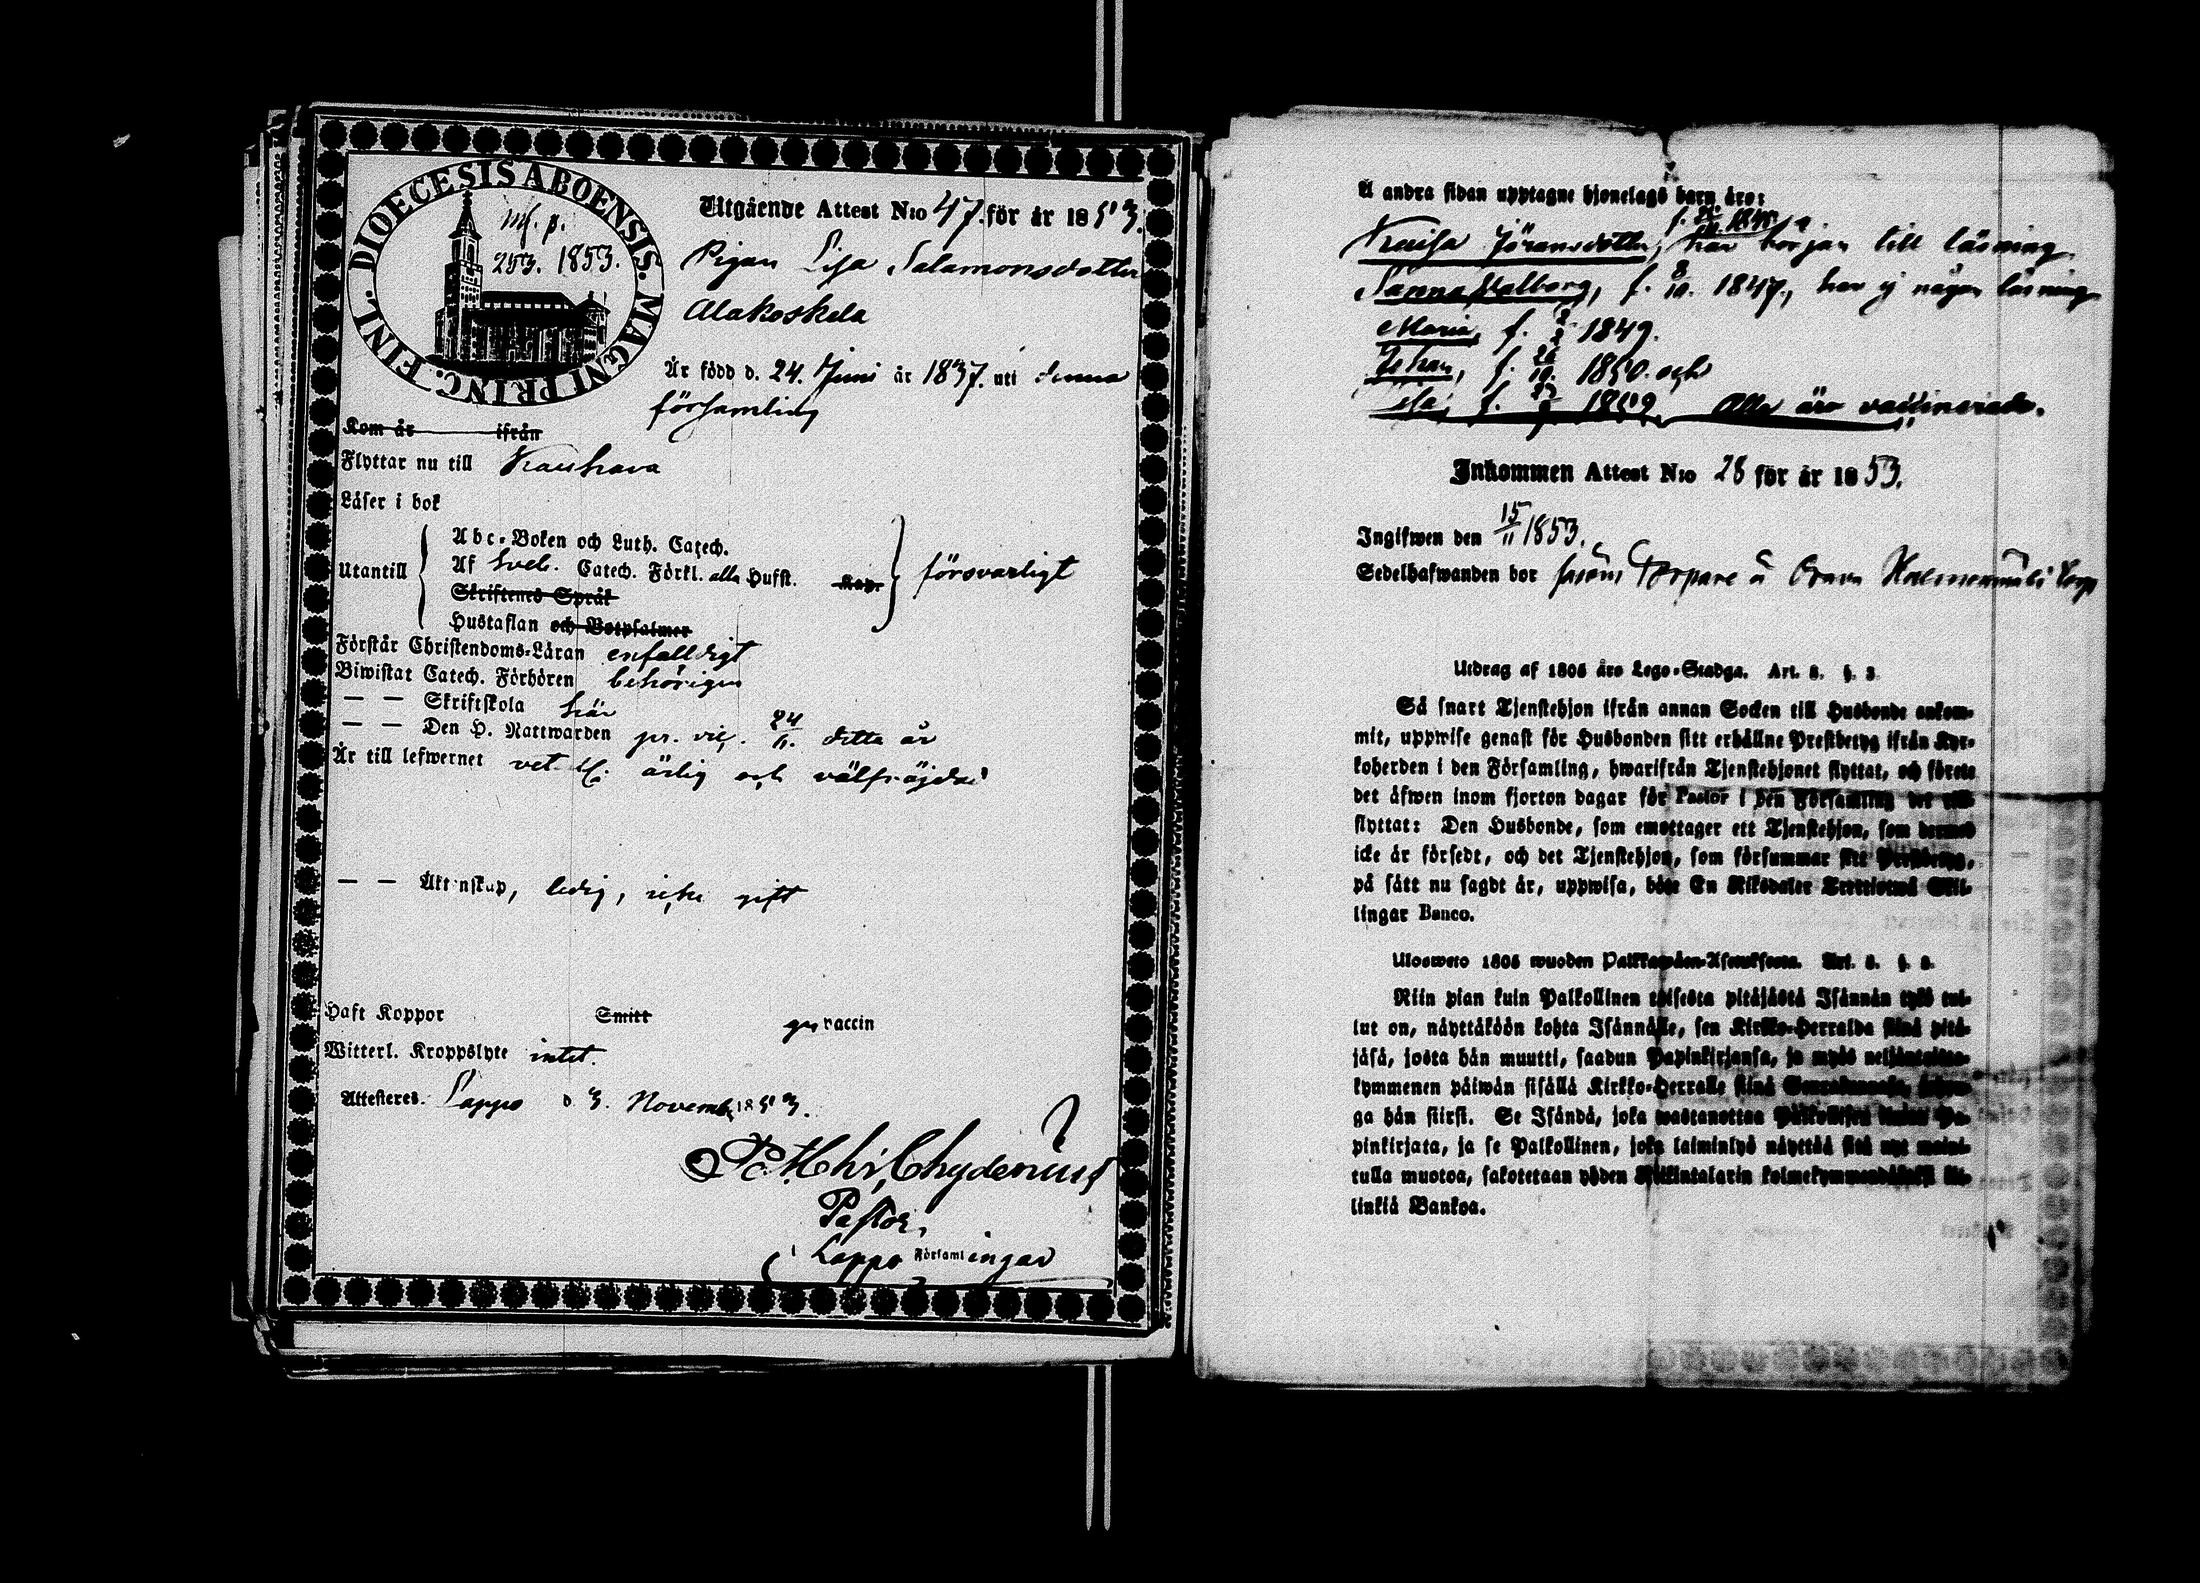 DIOECESIS ABOENSIS. MAGNI PRINC. FINL.
inf. p.
253. 1853.
Utgående Attest N:o 47. för år 1853.
Pigan Lisa Salamonsdotter
Alakoskela
Är född d. 24. Juni år 1837. uti denna
församling
Kom år ifrån
Flyttar nu till Kauhava
Läser i bok
Utantill
Abc-Boken och Luth. Catech.
Af Sveb. Catech. Förkl. alla Hufst. Kap.
försvarligt
Skriftenes Språk
Hustaflan och Botpsalmer
Förstår Christendoms-Läran enfaldigt
Biwistat Catech. Förhören behörigen
— — Skriftskola här
— — Den H. Nattwarden ditta år
Är till lefwernet vet. ärlig och välfräjdad
— — Äktenskap, ledig, icke gift
Haft Koppor Smitt vaccin
Witterl. Kroppslyte intet.
Attesteras. Lappo d 3. Novemb. 1853.
Chydenius
Pastor,
Lappo Församlingar
Å andra sidan upptagne hjonelags barn äro:
Kaisa Jöransdotter, har början till läsning
Sanna Valborg, f. 8/10. 1847., har ej någon läsning
Maria, f. 1849.
Johan, f. 26/10. 1850. och
f. Alla äro vaccinerade.
Inkommen Attest N:o 28 för år 1853.
Ingifwen den 15/11 1853.
Sedelhafwanden bor såsom Torpare å Orava
Utdrag af 1805 års Lego-Stadga. Art. 8. §. 3
Så snart Tjenstehjon ifrån annan Socken till Husbonde ankom-
mit, uppwise genast för Husbonden sitt erhållne Prestbetyg ifrån Kyr-
koherden i den Församling, hwarifrån Tjenstehjonet flyttat, och förete
det äfwen inom fjorton dagar för Pastor i den Församling det till-
flyttat: Den Husbonde, som emottager ett Tjenstehjon, som dermed
icke är försedt, och det Tjenstehjon, som försummar sitt Prestbetyg,
på sätt nu sagdt är, uppwisa, böte En Riksdaler Trettiotwå Skil-
lingar Banco.
Ulosweto 1805 wuoden Palkkawäen-Asetuksesta. Art. 8. §. 3.
Niin pian kuin Palkollinen toisesta pitäjästä Isännän tykö tul-
lut on, näyttäköön kohta Isännälle, sen Kirkko-Herralda siinä pitä-
jäsä, josta hän muutti, saadun Papinkirjansa, ja myös neljäntoista-
kymmenen päiwän sisällä Kirkko-Herralle siinä Seurakunnassa, johon-
ga hän siirsi. Se Isändä, joka wastanottaa Palkollisen ilman Pa-
pinkirjata, ja se Palkollinen, joka laiminlyö näyttää sitä nyt maini-
tulla muotoa, sakotetaan yhden Riikintalarin kolmekymmendäkaksi kil-
linkiä Bankoa.